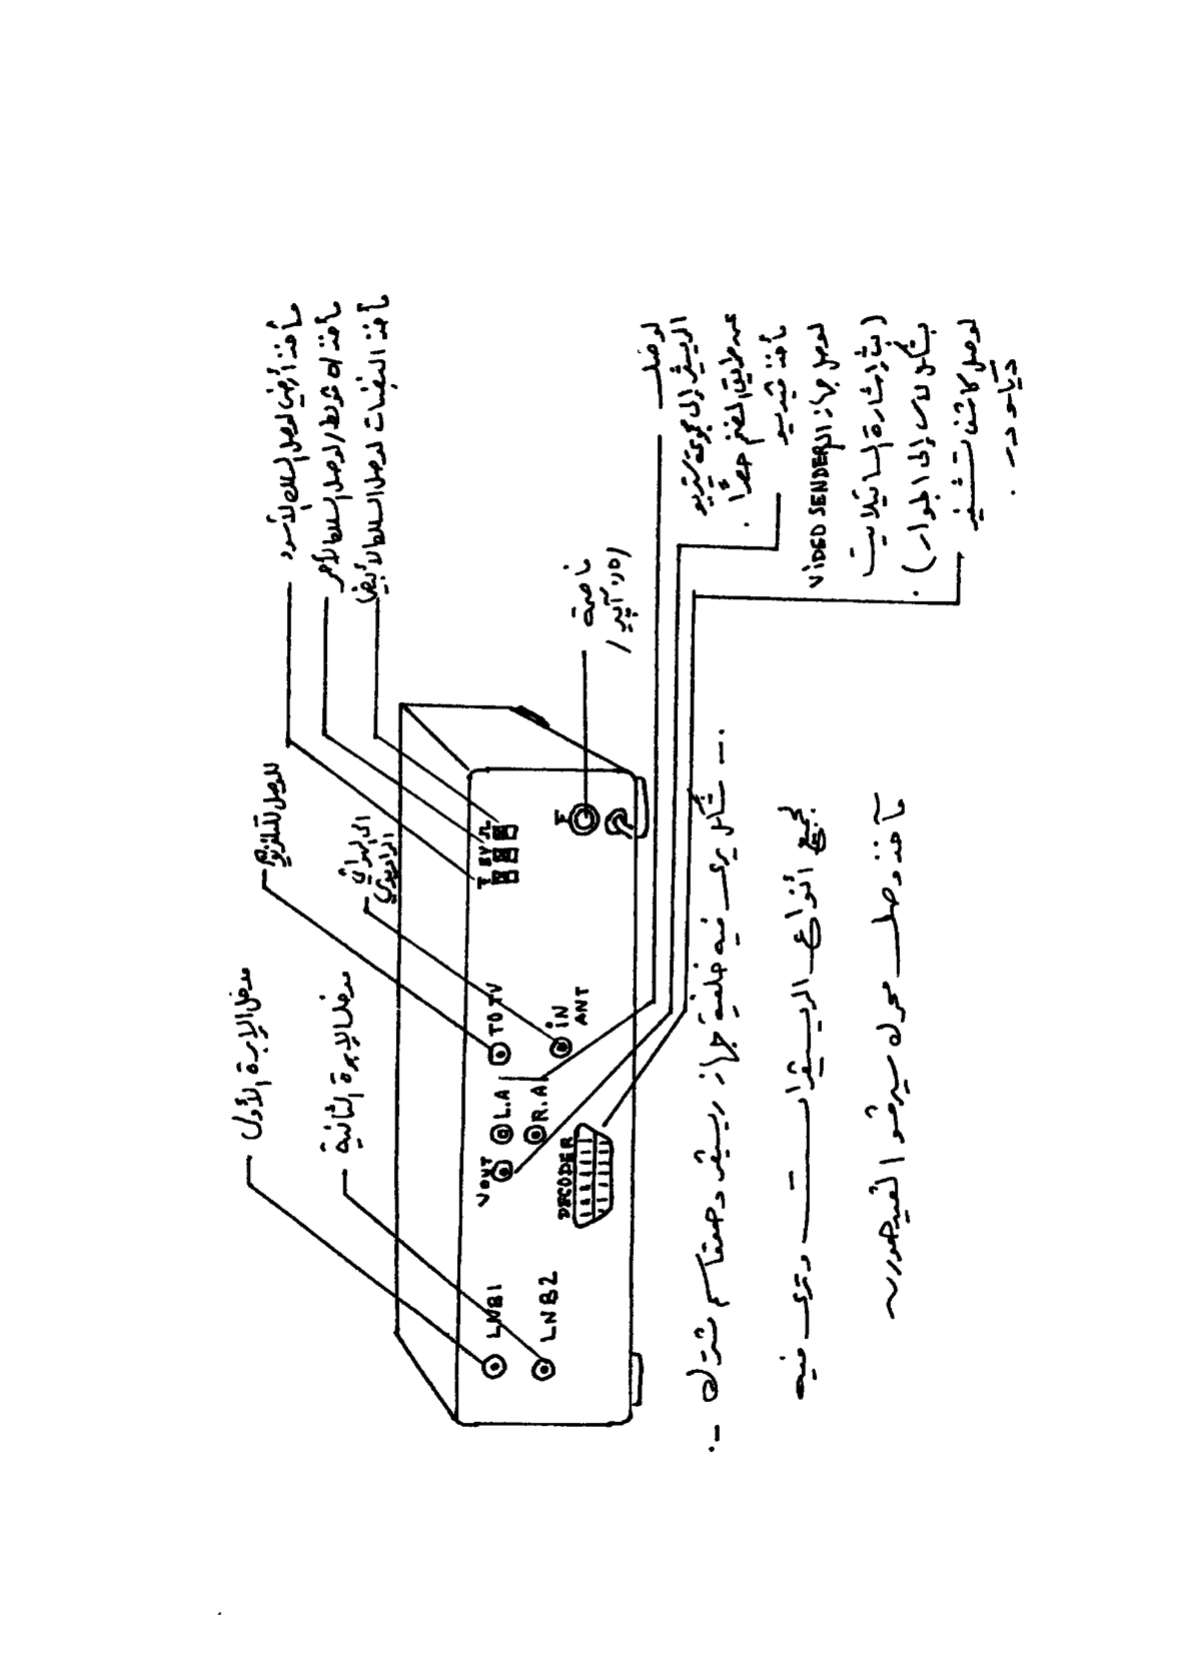 مدخل الإبرة الأولى
مدخل الإبرة الثانية
للوصل للتلفزيون
إلى الهوائي
الراديوي
مأخذ أرضي لوصل السلك الأسود
مأخذ ٥ فولط / لوصل السلك الأحمر
مأخذ النبضات لوصل السلك الأبيض
LNB1
LNB2
VOUT
L.A
R.A
DECODER
TO TV
IN
ANT
T 5V
F
فاصمة
١ آمبير / ١٥٠
لوصل
مأخذ فيديو
لوصل جهاز الـ VIDEO SENDER
(بث إشارة الساتيلايت
بشكل لاسلكي إلى الجوار) .
لوصل كاشف تشفير
ديكودر .
.ـ شكل يرى فيه خلفية جهاز ريسيفر وكقاسم مشترك ـ.
لجميع أنواع الريسيفرات ـ وترى فيه
مآخذ وصل محرك سيرفو القمر صورية